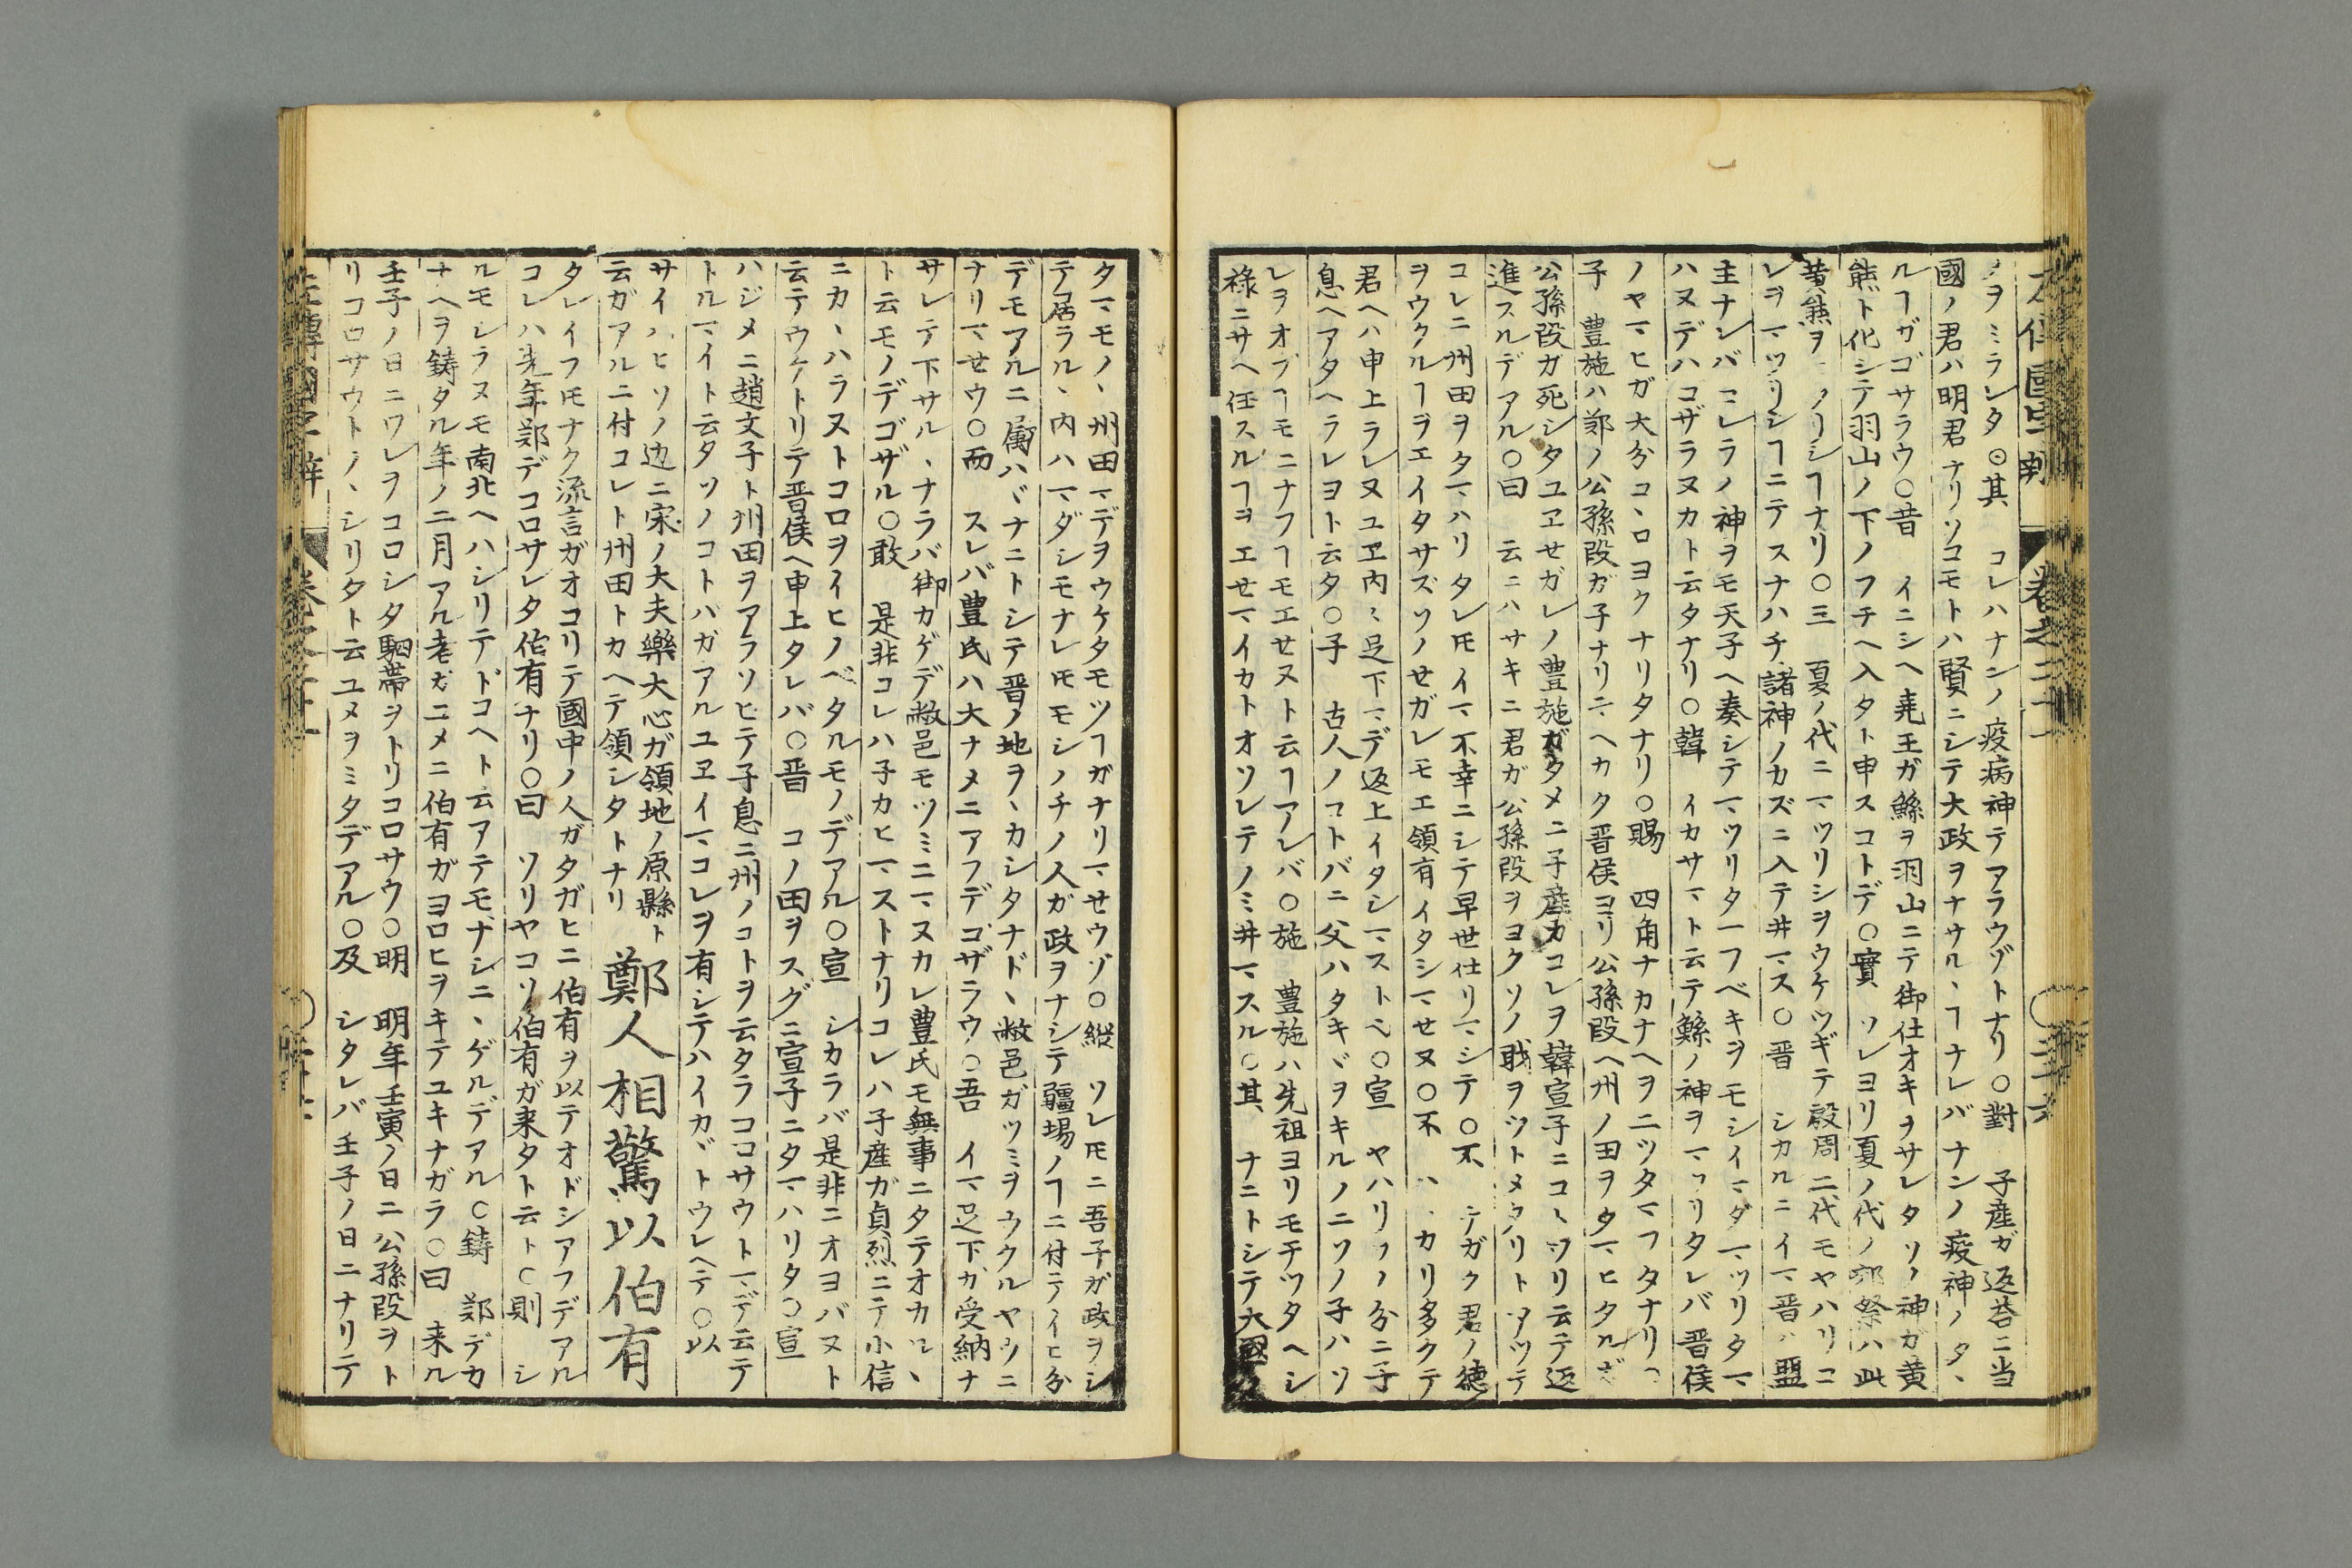 ヲミラレタ〇其 コレハナンノ疫病神テアラウゾトナリ〇對 子産ガ返荅ニ当
國ノ君ハ明君ナリソコモトハ賢ニシテ大政ヲナサル、ヿナレバナンノ疫神ノタ、
ルヿガゴサラウ〇昔 イニシヘ尭王ガ鯀ヲ羽山ニテ御仕オキヲサレタソノ神ガ黄
熊ト化シテ羽山ノ下ノフチヘ入タト申スコトデ〇實 ソレヨリ夏ノ代ノ郊祭ハ此
黄熊ヲ ツリシヿナリ〇三 夏ノ代ニマツリシヲウケツギテ殷周二代モヤハリコ
レヲマツリシヿニテスナハチ諸神ノカズニ入テ井マス〇晋 シカルニイマ晋ハ盟
主ナレバコレラノ神ヲモ天子ヘ奏シテマツリタマフベキヲモシイマダマツリタマ
ハヌデハコザラヌカト云タナリ〇韓 イカサマト云テ鯀ノ神ヲマツリタレバ晋侯
ノヤマヒガ大分コ、ロヨクナリタナリ〇賜 四角ナカナヘヲ二ツタマフタナリ
子 豊施ハ鄭ノ公孫段ガ子ナリ ヘカク晋侯ヨリ公孫段ヘ州ノ田ヲタマヒタルガ
公孫段ガ死シタユヱせガレノ豊施ガタメニ子産カコレヲ韓宣子ニコトワリ云テ返
進スルデアル〇曰 云ニハサキニ君ガ公孫段ヲヨクソノ戝ヲツトメタリトアツテ
コレニ州田ヲタマハリタレ𪜈イマ不幸ニシテ早世仕リマシテ〇不 ナガク君ノ徳
ヲウクルヿヲエイタサズソノせガレモエ領有イタシマせヌ〇不 ハ カリ多クテ
君ヘハ申上ラレヌユヱ内〻足下マデ返上イタシマスト〇宣 ヤハリソノ分ニ子
息ヘアタヘラレヨト云タ〇子 古人ノコトバニ父ハタキヾヲキルノニソノ子ハソ
レヲオブヿモニナフヿモエせヌト云ヿアレバ〇施 豊施ハ先祖ヨリモチツタヘシ
祿ニサヘ任スルヿヲエせマイカトオソレテノミ井マスル〇其 ナニトシテ大國
タマモノ、州田マデヲウケタモツヿガナリマせウゾ〇縱 ソレ𪜈ニ吾子ガ政ヲシ
テ居ラル、内ハマダシモナレ𪜈モシノチノ人ガ政ヲナシテ疆場ノヿニ付テイヒ分
デモアルニ属ハヾナニトシテ晋ノ地ヲ、カシタナド、敝邑ガツミヲウクルヤウニ
ナリマせウ〇而 スレバ豊氏ハ大ナメニアフデゴザラウ〇吾 イマ足下カ受納ナ
サレテ下サル、ナラバ御カゲデ敝邑モツミニマヌカレ豊氏モ無事ニタテオカル、
ト云モノデゴザル〇敢 是非コレハ子カヒマストナリコレハ子産ガ貞烈ニテ小信
ニカ、ハラヌトコロヲイヒノベタルモノデアル〇宣 シカラバ是非ニオヨバヌト
云テウケトリテ晋侯ヘ申上タレバ〇晋 コノ田ヲスグニ宣子ニタマハリタ〇宣
ハジメニ趙文子ト州田ヲアラソヒテ子息ニ州ノコトヲ云タラココサウトマデ云テ
トルマイト云タソノコトバガアルユヱイマコレヲ有シテハイカヾトウレヘテ〇以
サイハヒソノ辺ニ宋ノ大夫樂大心ガ領地ノ原縣ト
云ガアルニ付コレト州田トカヘテ領シタトナリ 鄭人相驚以伯有
タレイフ𪜈ナク流言ガオコリテ國中ノ人ガタガヒニ伯有ヲ以テオドシアフデアル
コレハ先年鄭デコロサレタ伯有ナリ〇曰 ソリヤコソ伯有ガ来タト云ト〇則 シ
ルモシラヌモ南北ヘハシリテドコヘト云アテモナシニ、ゲルデアル〇鋳 鄭デカ
ナヘヲ鋳タル年ノ二月アル者ガユメニ伯有ガヨロヒヲキテユキナガラ〇曰 来ル
壬子ノ日ニワレヲコロシタ駟帯ヲトリコロサウ〇明 明年壬寅ノ日ニ公孫段ヲト
リコロサウトノ、シリタト云ユメヲミタデアル〇及 シタレバ壬子ノ日ニナリテ